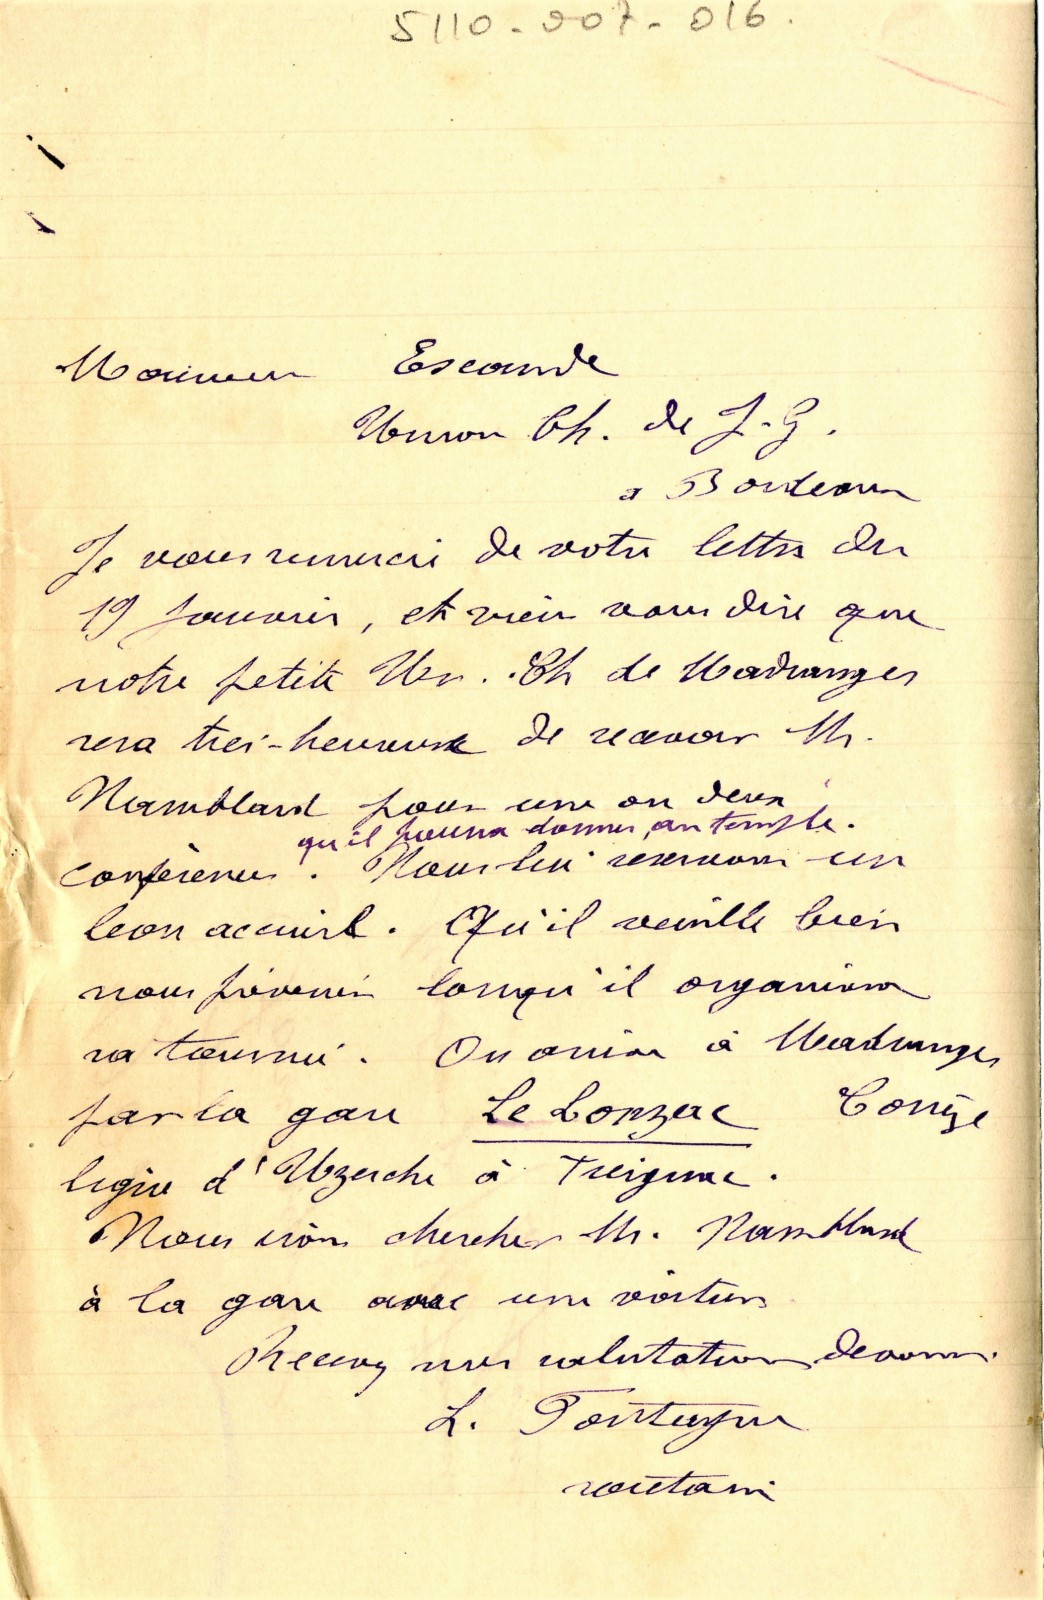 5110-007-016.
Monsieur Escande
Union Ch. de J-G.
à Bordeaux
Je vous remercie de votre lettre du
19 Janvier, et viens vous dire que
notre petite Un. Ch de Madranges
sera très-heureuse de recevoir Mr.
Namblard pour une ou deux
qu'il pourra donner au temple.
conférences. Nous lui reservons un
bon accueil. Qu'il veuille bien
nous prévenir lorsqu'il organisera
sa tournée. On arrive à Madranges
par la gare Le Lonzac Corrèze
ligne d'Uzerche à Treignac.
Nous irons chercher Mr. Namblard
à la gare avec une voiture
Recevez nos salutations
L.